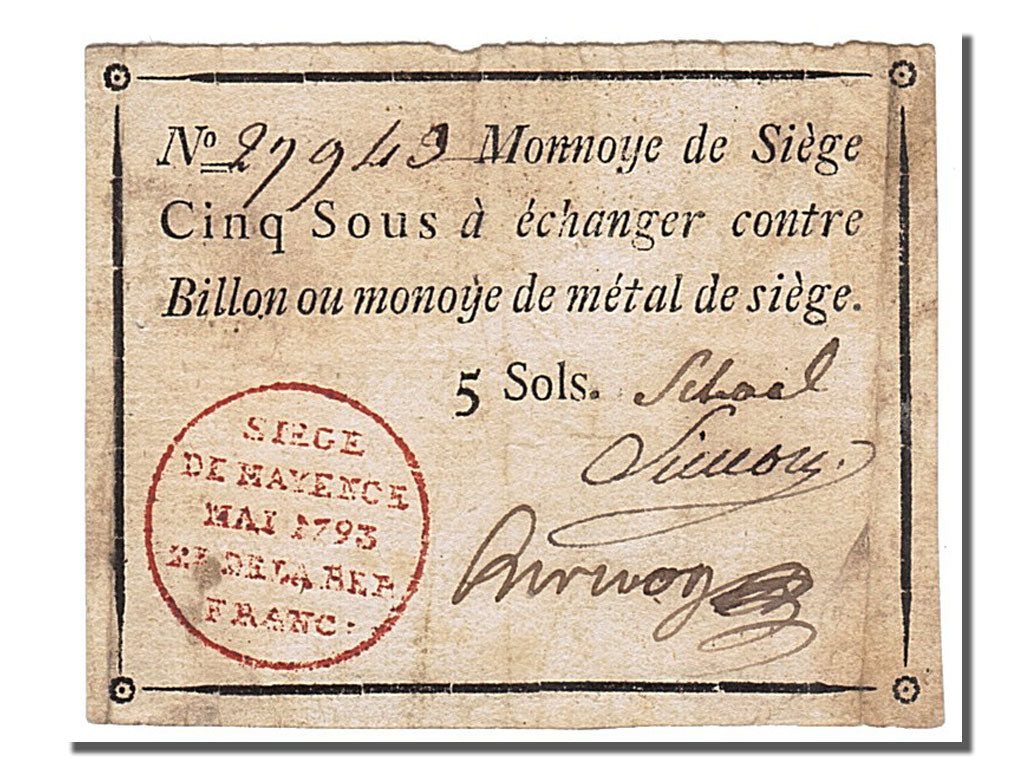 No 27943 Monnoye de Siège
Cinq Sous à échanger contre
Billon ou monoye de métal de siège.
5 Sols.
Simon
SIEGE
DE MAYENCE
MAI 1793
2E DE LA REP
FRANC: